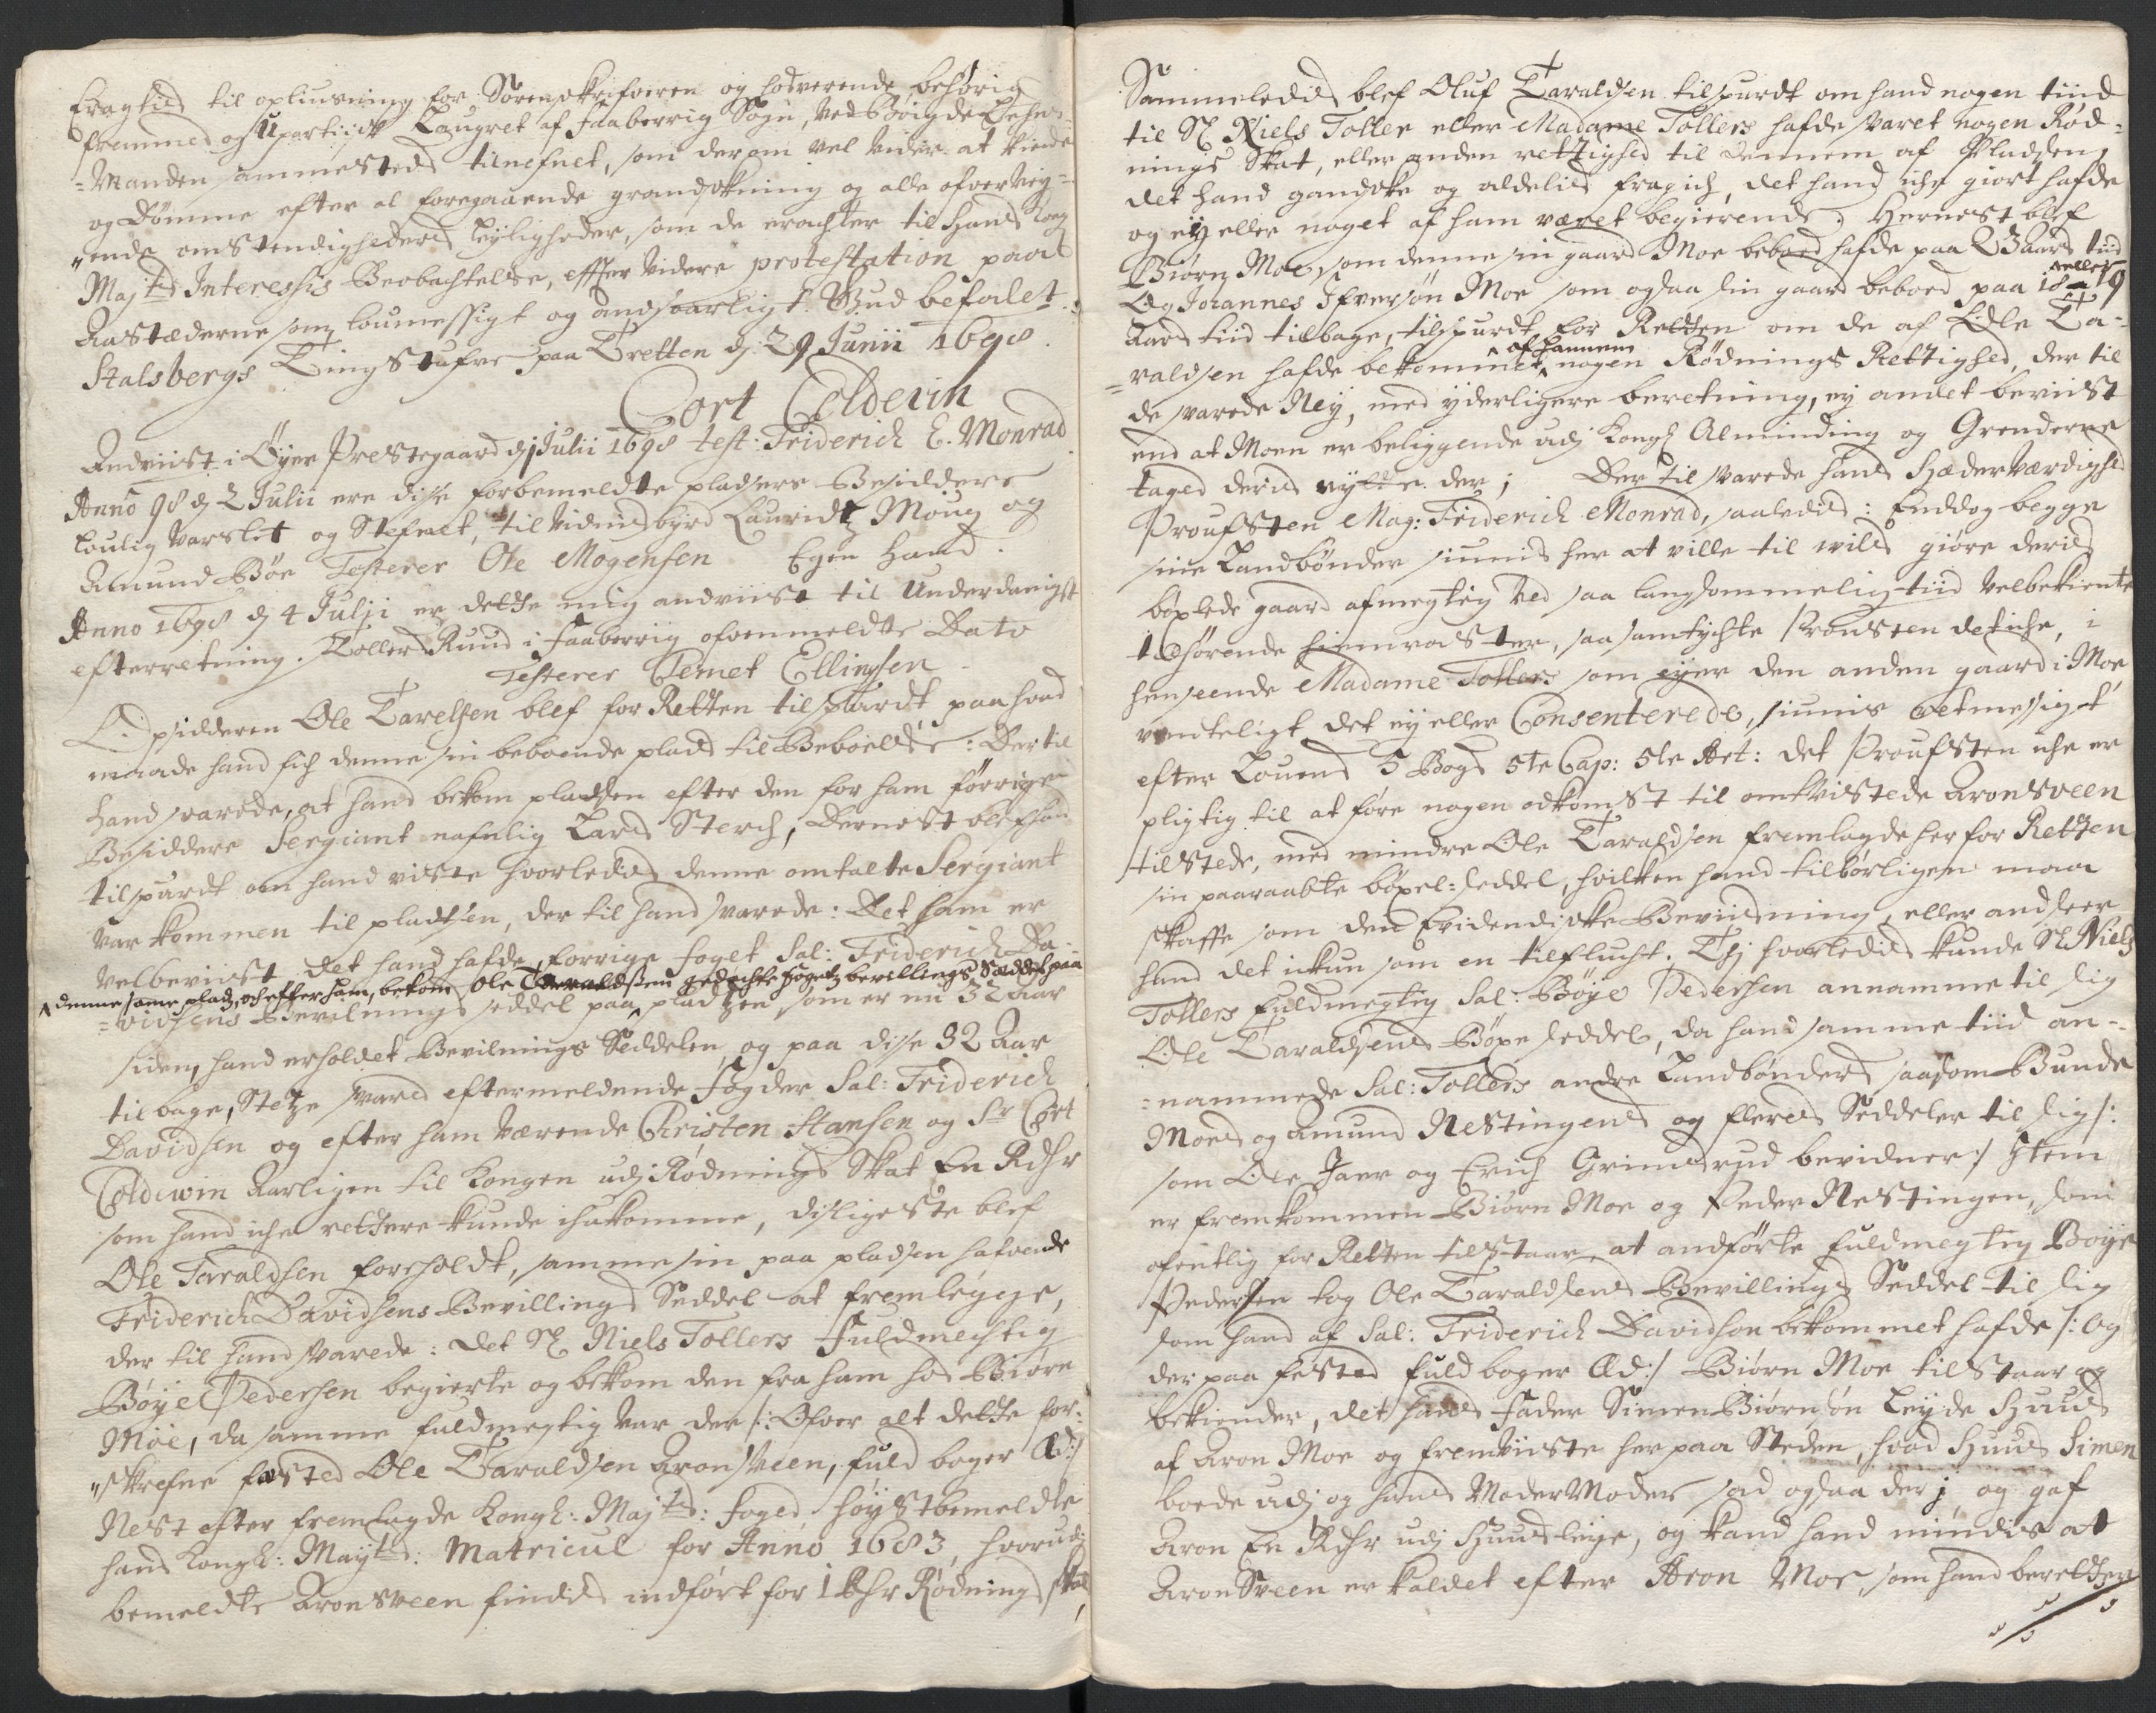 fragtis til opliusning for Sorenskrifveren og hosverende behørig
fremmed og Upartiisk Laugret af Faaberrig Sogn, ved Bøigde Lehns-
=Manden sammesteds tilnefnet, som derom vel vider at kiende
og Dømme efter al foregaaende grandskning og alle ofverveig-
"ende omstendigheders leyligheder, som de erachter til Hans Kong
Majts Interessis Beobachtelse, effter videre protestation paa
Aastæderne som loumessigt og andsvarligt. Bud befalet.
Stalsbergs Tingstufve paa Tretten d: 29 Junii 1698.
Cort Coldevin
Andviist i Øyer Prestegaard d 1 Julii 1698 test: Friderich C. Monrad
Anno 98 d 2 Julii ere disse forbemeldte pladsers Besiddere
loulig varslet og Stefnet, til Vidnisbyrd Lauridtz Moug og
Amund Bøe Testerer Ole Mogensen Egen Haand.
Anno 1698 d 4 Julii er dette mig andviist til Underdanigst
efterretning. Tollerd Ruud i Faaberrig ofvenmeldte Dato
Testerer Temet Ellingsen
Opsidderen Ole Tarelsen blef for Retten tilspurdt paa hvad
maade hand sich denne sin beboende plads til Beboelse: Dertil
hand svarede, at hand bekom pladsen efter den for ham førrige
Besiddere Sergiant nafnlig Lars Sterch; Dernest blef hand
tilspurdt om hand viste hvorledes denne omtalte Sergiant
var kommen til pladsen, der til hand svarede: Det ham er
velbeviist det hand hafde forrige foget Sal: Friderich Da-
denne same plads, och effter ham, bekom Ole Taraldssen gedachte fogets bevillings Seddel paa
=vidsens Bevilnings seddel paa pladtzen som er nu 32 Aar
siden, hand erholdet Bevilnings Seddelen, og paa disse 32 Aar
tilbage, Stetze svared eftermeldende Fogder Sal: Friderich
Davidsen og efter ham Værende Christen Hansen og Sr Cort
Coldewin Aarligen til Kongen udj Rødnings Skat En Rdhr
som hand iche rettere kunde ihukomme, disligeste blef
Ole Taraldsen foreholdt, samme sin paa pladsen hafvende
Friderich Davidsens Bevillings Seddel at fremlegge,
der til hand svarede: det Sl Niels Tollers Fuldmechtig
Bøye Pedersen begierte og bekom den fra ham hos Biørn
Moe, da samme fuldmegtig var der /: Ofver alt dette for-
"skrefne fæsted Ole Taraldsen Aronsveen, fuld boger Æd:/
Nest efter fremlagde Kongl: Majts: foged høystbemeldte
hans Kongl: Mayts: Matricul for Anno 1683, hvorudj
bemeldte Aronsveen findis indført for 1 Rdhr Rødnings skat,
Sammeledis blef Oluf Taraldsen tilspurdt om hand nogen tiid
til Sl Niels Toller eller Madame Tollers hafde svaret nogen Rød-
nings Skat, eller anden rettighed til dennem af Pladtzen,
det hand gandske og aldelis fragich, det hand iche giort hafde
og ey eller noget af ham været begierende, Hernest blef
Biørn Moe, som denne sin gaard Moe beboed hafde paa 2 Aars tiid
Og Johannes Ifversøn Moe som ogsaa sin gaard beboed paa 18 eller 19
Aars tiid tilbage, tilspurdt for Retten om de af Ole Ta-
=raldsen hafde bekommet af hannem nogen Rødnings Rettighed, der til
de svarede Ney, med yderligere beretning, ey andet beviist
end at Moen er beliggende udj Kongl Alminding og Grenderne
tager deris nytte der; Der til svarede hans Hæderværdighed
Proufsten Mag: Friderich Monrad, saaledis: Enddog begge
sine Landbønder siunis her at ville til wils giøre deris
böxlede gaard afmegtig Ved saa langsommelig tiid velbekiente
tilhørende hiemraster, saa samtychte Prousten det iche, i
henseende Madame Tollers som eyer den anden gaard i Moe
venteligt det ey eller Consenterede, siunis retmessigt
efter Louens 5 Bogs 5te Cap: 5te Art: det Proufsten iche er
pligtig til at føre nogen adkomst til omtvistede Aronsveen
tilstede, med mindre Ole Taraldsen fremlagde her for Retten
sin paaraabte böxel-seddel, hvilken hand tilbørligen maa
skaffe som den Evidendiske Beviisning, eller andseer
hand det ickun som en tilflucht. Thj hvorledis kunde Sl Niels
Tollers fuldmegtig Sal: Böye Pedersen annamme til sig
Ole Taraldsens Böxelseddel, da hand samme tiid an-
=nammede Sal: Tollers andre Landbønders saasom Bunde
Moes og Amund Nestingens og fleres Seddeler til sig /:
som Ole Jaer og Erich Grimsrud bevidner:/ Item
er fremkommen Biørn Moe og Peder Nestingen, som
ofentlig for Retten tilstaar, at andførte fuldmegtig Bøye
Pedersen tog Ole Taraldsens Bevillings Seddel til sig
som hand af Sal: Friderich Davidsøn bekommet hafde /: Og
der paa fested fuld boger Æd:/ Biørn Moe tilstaar og
bekiender, det hans Fader Simen Biørnsøn leyde Huus
af Aron Moe og fremviiste her paa Steden, hvad Huus Simen
boede udj og hans Moder Moder sad ogsaa derj, og gaf
Aron En Rdhr udj Huusleye, og kand hand mindis at
Aronsveen er kaldet efter Aron Moe, som hand beretther